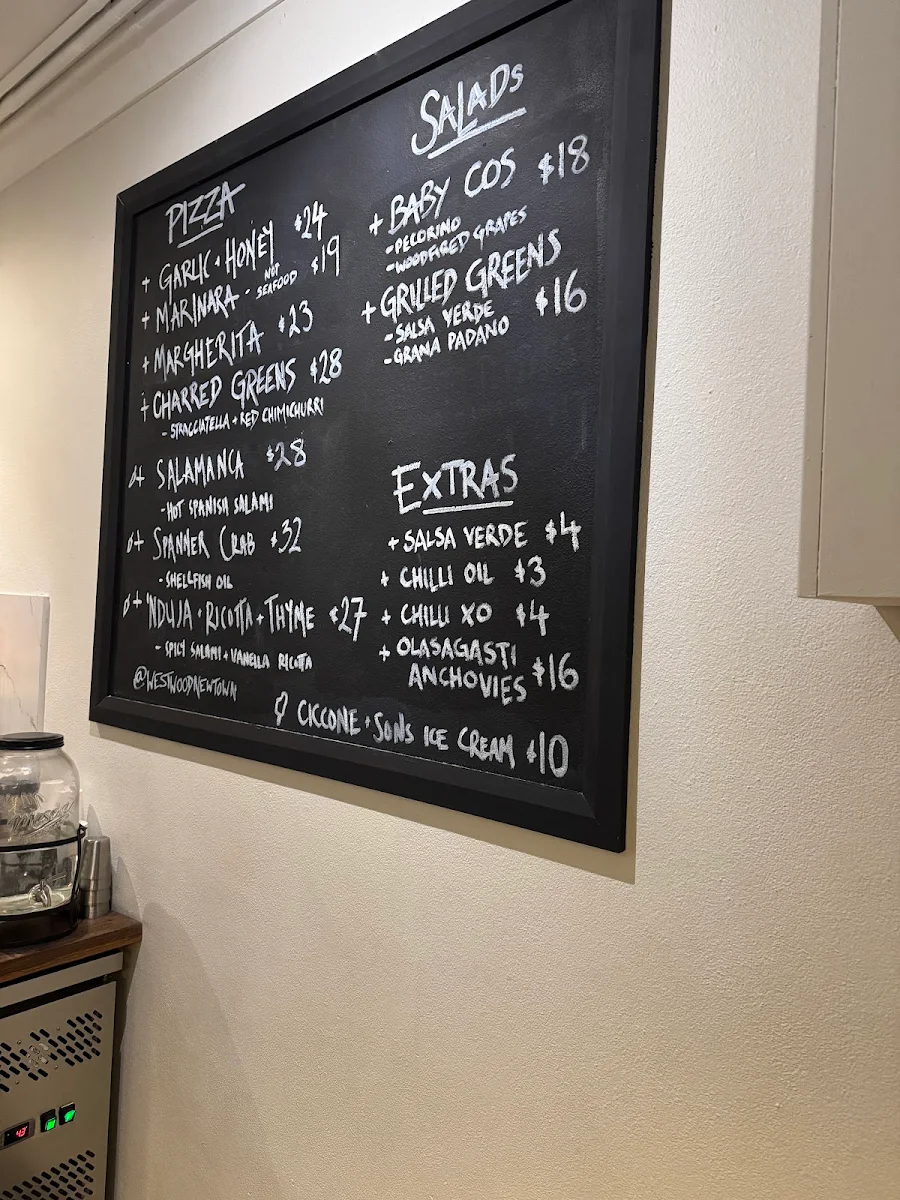 PIZZA
+ GARLIC + HONEY $24
+ MARINARA - NOT SEAFOOD $19
+ MARGHERITA $23
+ CHARRED GREENS $28
- STRACCIATELLA + RED CHIMICHURRI
+ SALAMANCA $28
- HOT SPANISH SALAMI
+ SPANNER CRAB $32
- SHELLFISH OIL
+ 'NDUJA + RICOTTA + THYME $27
- SPICY SALAMI + VANELLA RICOTTA
@WESTWOODNEWTOWN
SALADS
+ BABY COS $18
- PECORINO
- WOODFIRED GRAPES
+ GRILLED GREENS $16
- SALSA VERDE
- GRANA PADANO
EXTRAS
+ SALSA VERDE $4
+ CHILLI OIL $3
+ CHILLI XO $4
+ OLASAGASTI
ANCHOVIES $16
CICCONE + SONS ICE CREAM $10